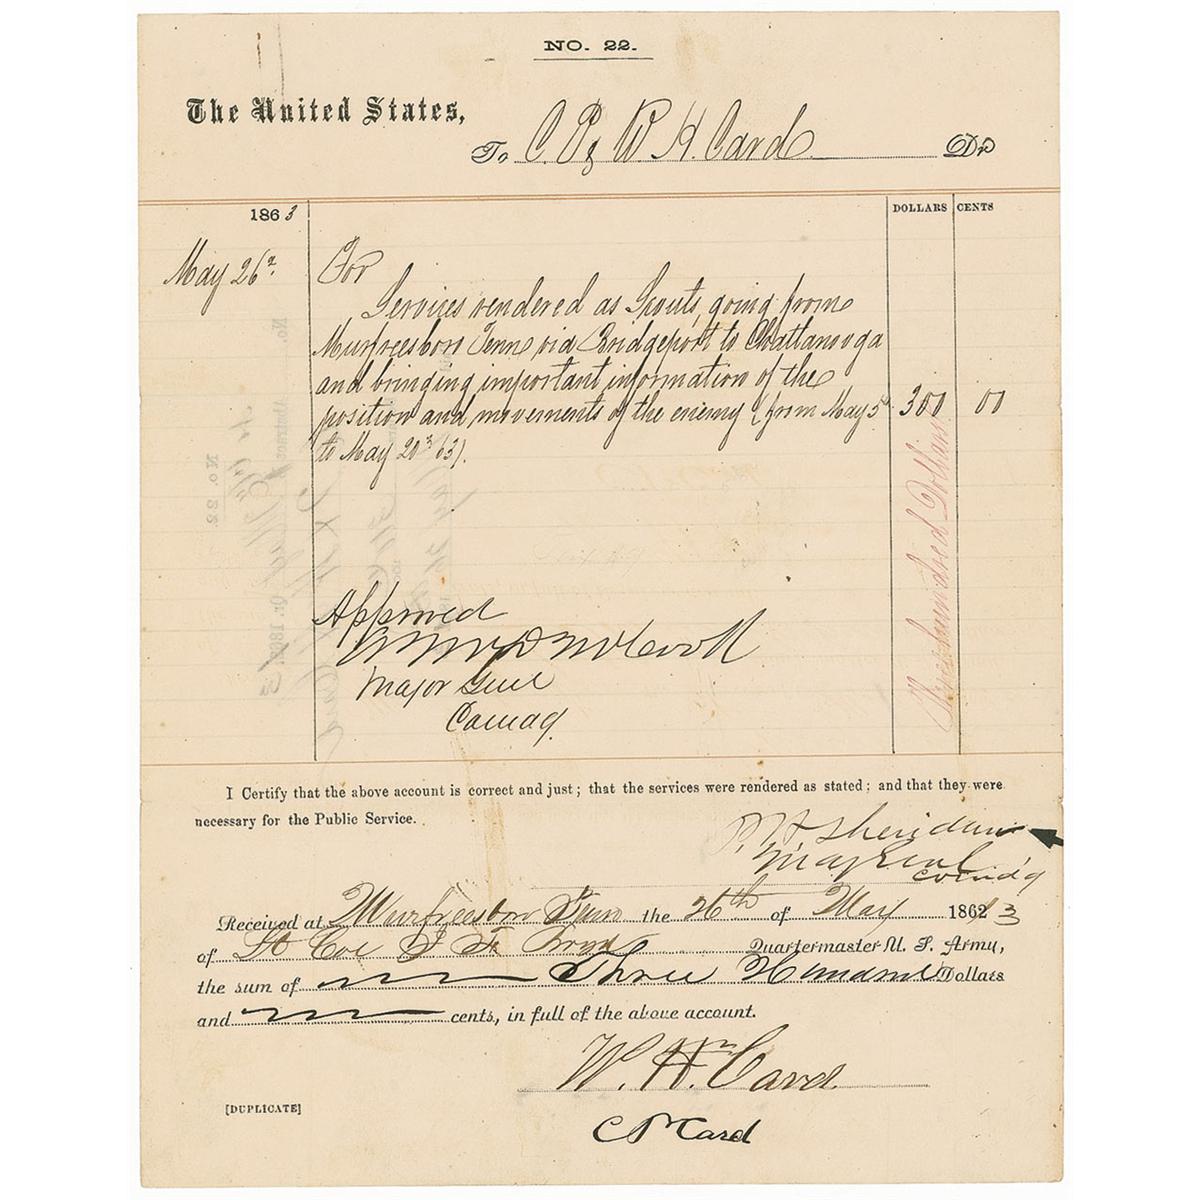 NO. 22.
The United States,
To C. P. & W H. Card Dr
1863 DOLLARS CENTS
May 26
For
Services rendered as Scouts, going from
Murfreesboro Tenn via Bridgeport to Chattanooga
and bringing important information of the
position and movements of the enemy (from May 5 300 00
to May 20 63).
Three hundred Dollars
Approved
McD McCook
Major Genl
Comdg.
I Certify that the above account is correct and just; that the services were rendered as stated; and that they were
necessary for the Public Service.
P. H. Sheridan
Maj Genl
Comd'g
Received at Murfreesboro Tenn the 26th of May 1862 3
of Lt Col Quartermaster U. S. Army,
the sum of Three Hundred Dollars
and cents, in full of the above account.
W. H. Card
[DUPLICATE]
C P Card